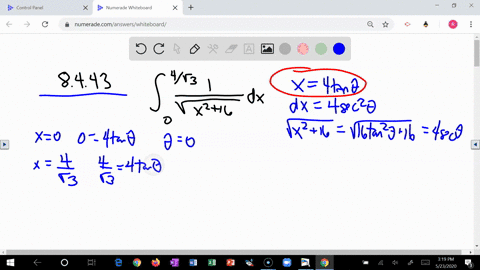 Control Panel
Numerade Whiteboard
numerade.com/answers/whiteboard/
8.4.43
∫₀^{4/√3} 1/√(x²+16) dx
x=4tanθ
dx=4sec²θ
√(x²+16) = √(16tan²θ+16) = 4secθ
x=0 0=4tanθ θ=0
x=4/√3 4/√3=4tanθ
3:19 PM
5/23/2020